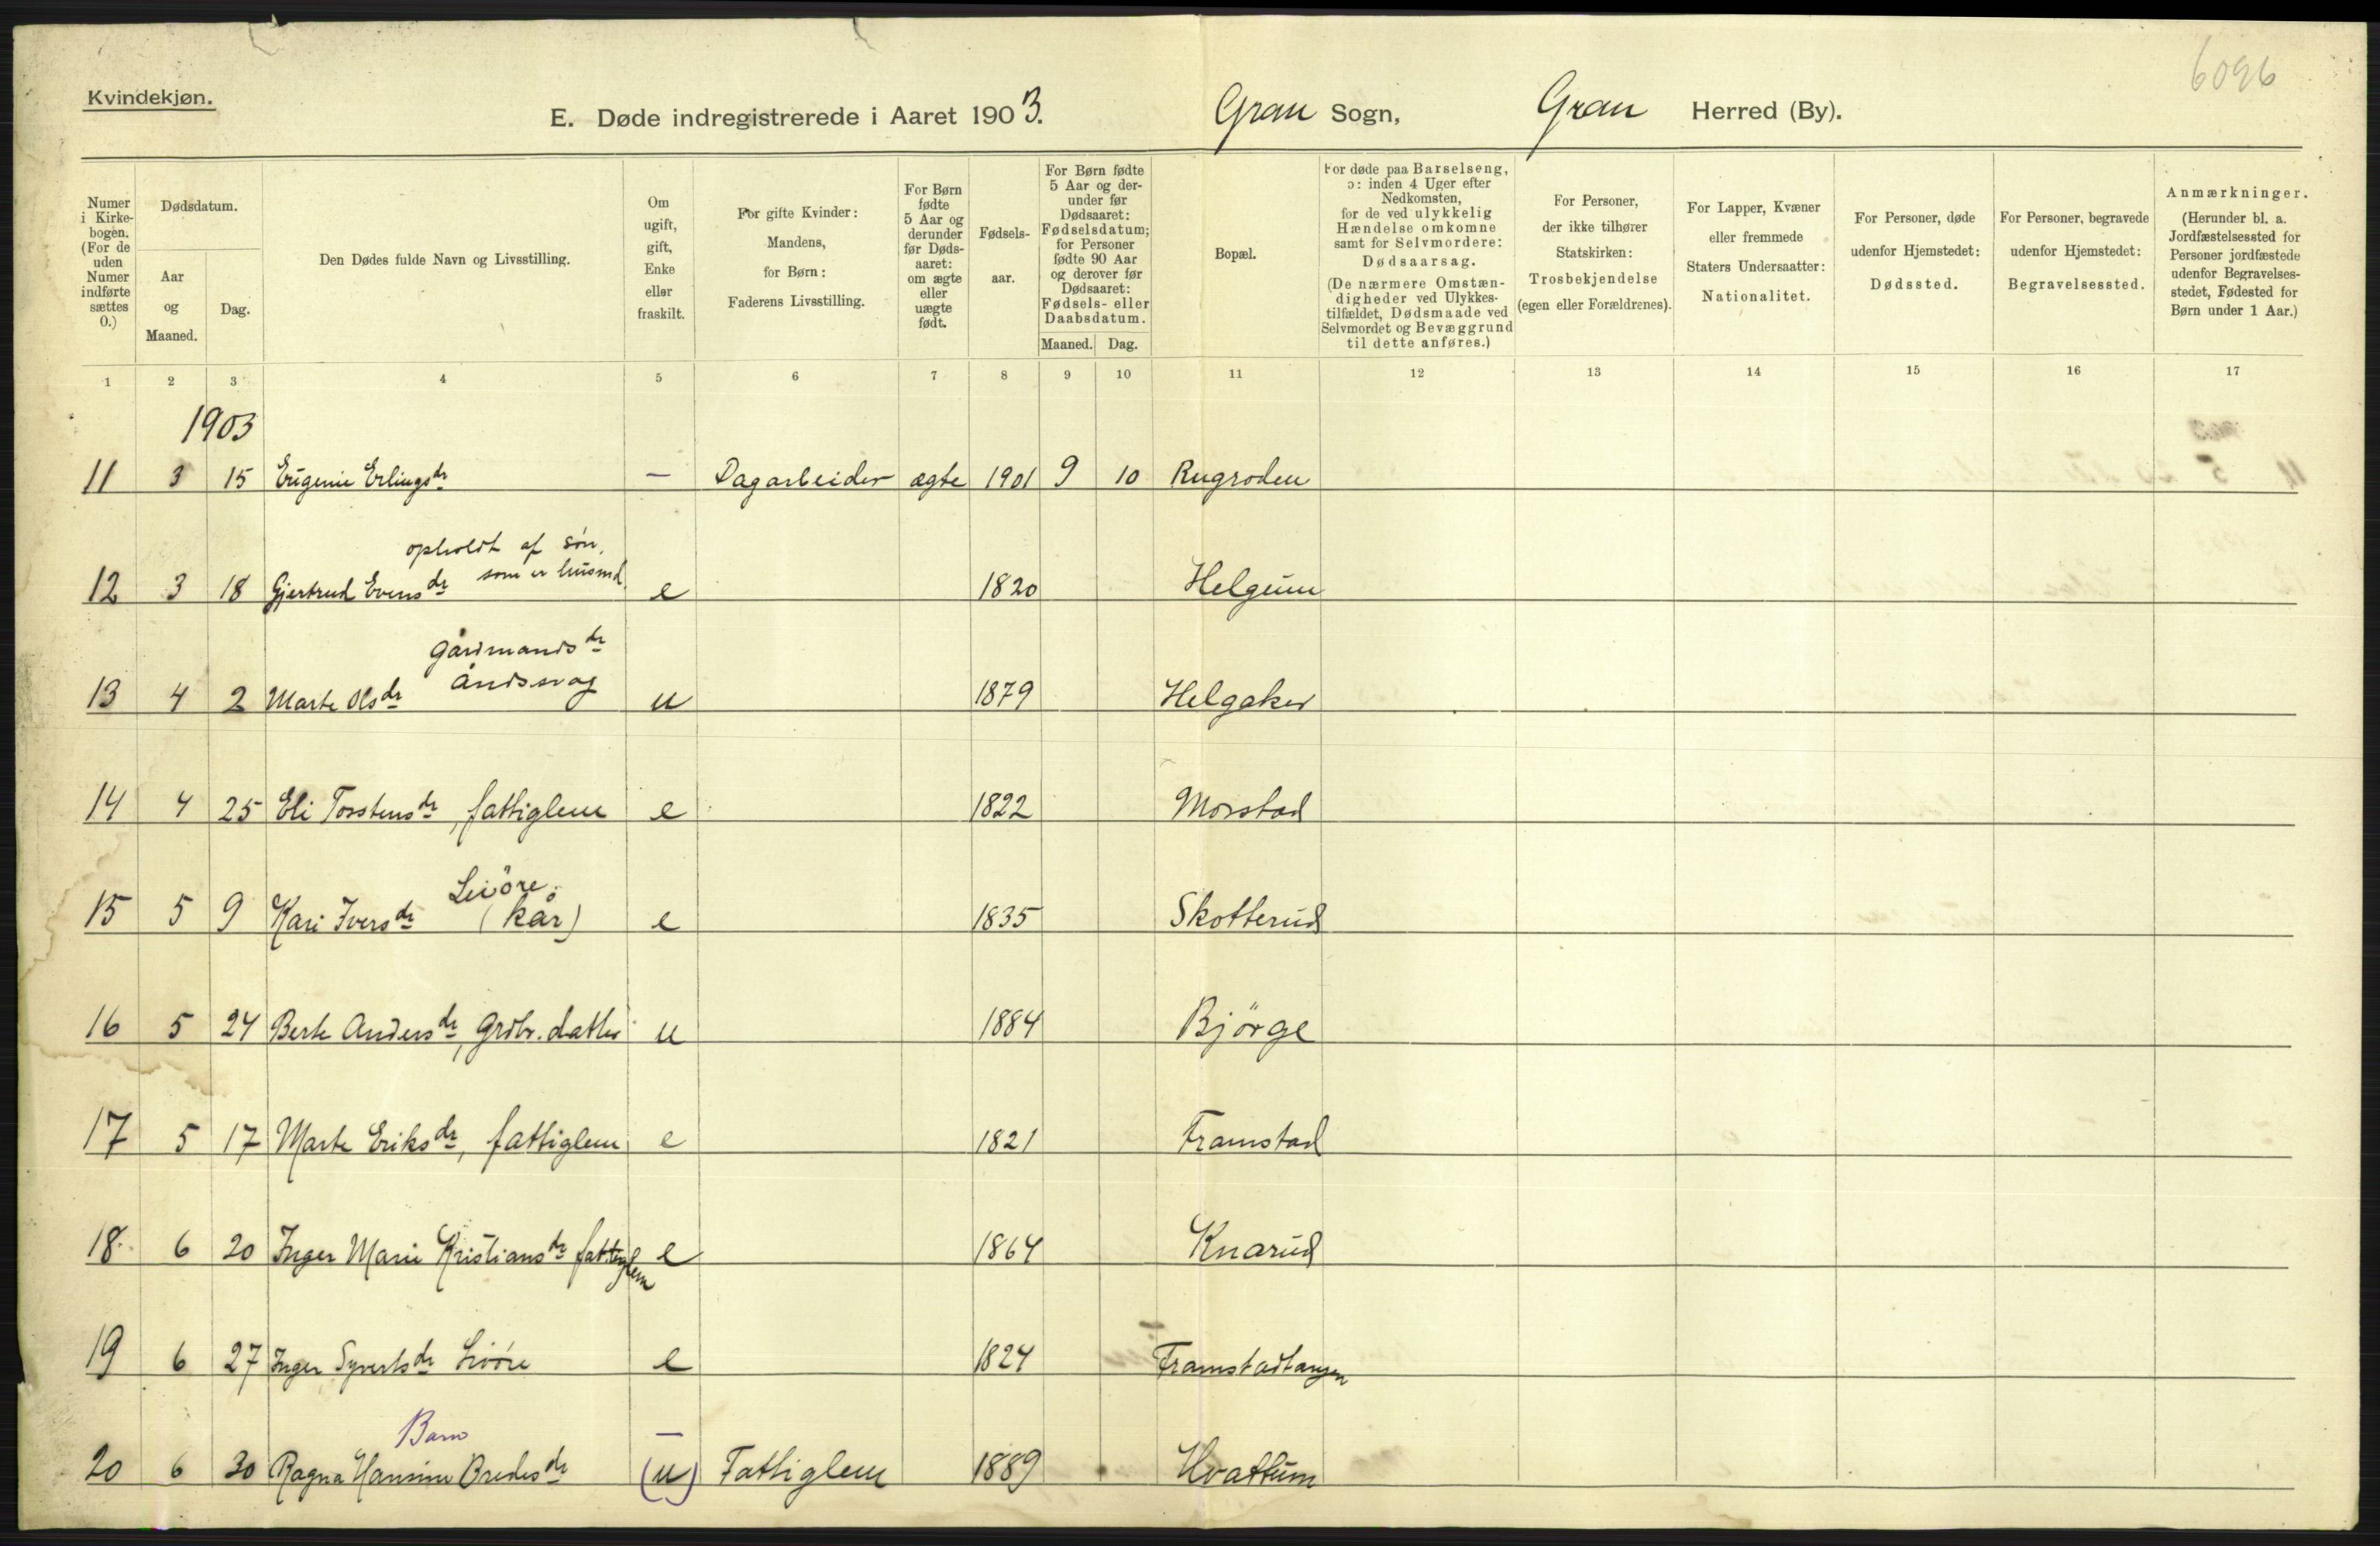 6096
Kvindekjøn.
E. Døde indregistrerede i Aaret 1903. Gran Sogn, Gran Herred (By).
Numer i Kirkebogen. (For de uden Numer indførte sættes 0.)
Dødsdatum.
Aar og Maaned.
Dag.
Den Dødes fulde Navn og Livsstilling.
Om ugift, gift, Enke eller fraskilt.
For gifte Kvinder: Mandens, for Børn: Faderens Livsstilling.
For Børn fødte 5 Aar og derunder før Dødsaaret: om ægte eller uægte født.
Fødsels-aar.
For Børn fødte 5 Aar og derunder før Dødsaaret: Fødselsdatum; for Personer fødte 90 Aar og derover før Dødsaaret: Fødsels- eller Daabsdatum.
Maaned. Dag.
Bopæl.
For døde paa Barselseng, ɔ: inden 4 Uger efter Nedkomsten, for de ved ulykkelig Hændelse omkomne samt for Selvmordere: Dødsaarsag. (De nærmere Omstændigheder ved Ulykkestilfældet, Dødsmaade ved Selvmordet og Bevæggrund til dette anføres.)
For Personer, der ikke tilhører Statskirken: Trosbekjendelse (egen eller Forældrenes).
For Lapper, Kvæner eller fremmede Staters Undersaatter: Nationalitet.
For Personer, døde udenfor Hjemstedet: Dødssted.
For Personer, begravede udenfor Hjemstedet: Begravelsessted.
Anmærkninger. (Herunder bl. a. Jordfæstelsessted for Personer jordfæstede udenfor Begravelsesstedet, Fødested for Børn under 1 Aar.)
1 2 3 4 5 6 7 8 9 10 11 12 13 14 15 16 17
1903
11 3 15 Eugenie Erlingsdr — Dagarbeider ægte 1901 9 10 Rugroden
opholdt af søn,
som er husmd.
12 3 18 Gjertrud Evensdr e 1820 Helgum
Gårdmandsdr
åndssvag
13 4 2 Marte Olsdr u 1879 Helgaker
14 4 25 Eli Torstensdr, fattiglem e 1822 Morstad
Livöre.
15 5 9 Kari Iversdr (kår) e 1835 Skotterud
16 5 24 Berte Andersdr, Grdbr. datter u 1884 Björge
17 5 17 Marte Eriksdr, fattiglem e 1821 Framstad
18 6 20 Inger Marie Kristiansdr fattiglem e 1864 Knarud
19 6 27 Inger Syvertsdr Livöre e 1824 Framstadtangen
Barn —
20 6 30 Ragna Hansine Bredesdr (u) Fattiglem 1889 Hvattum